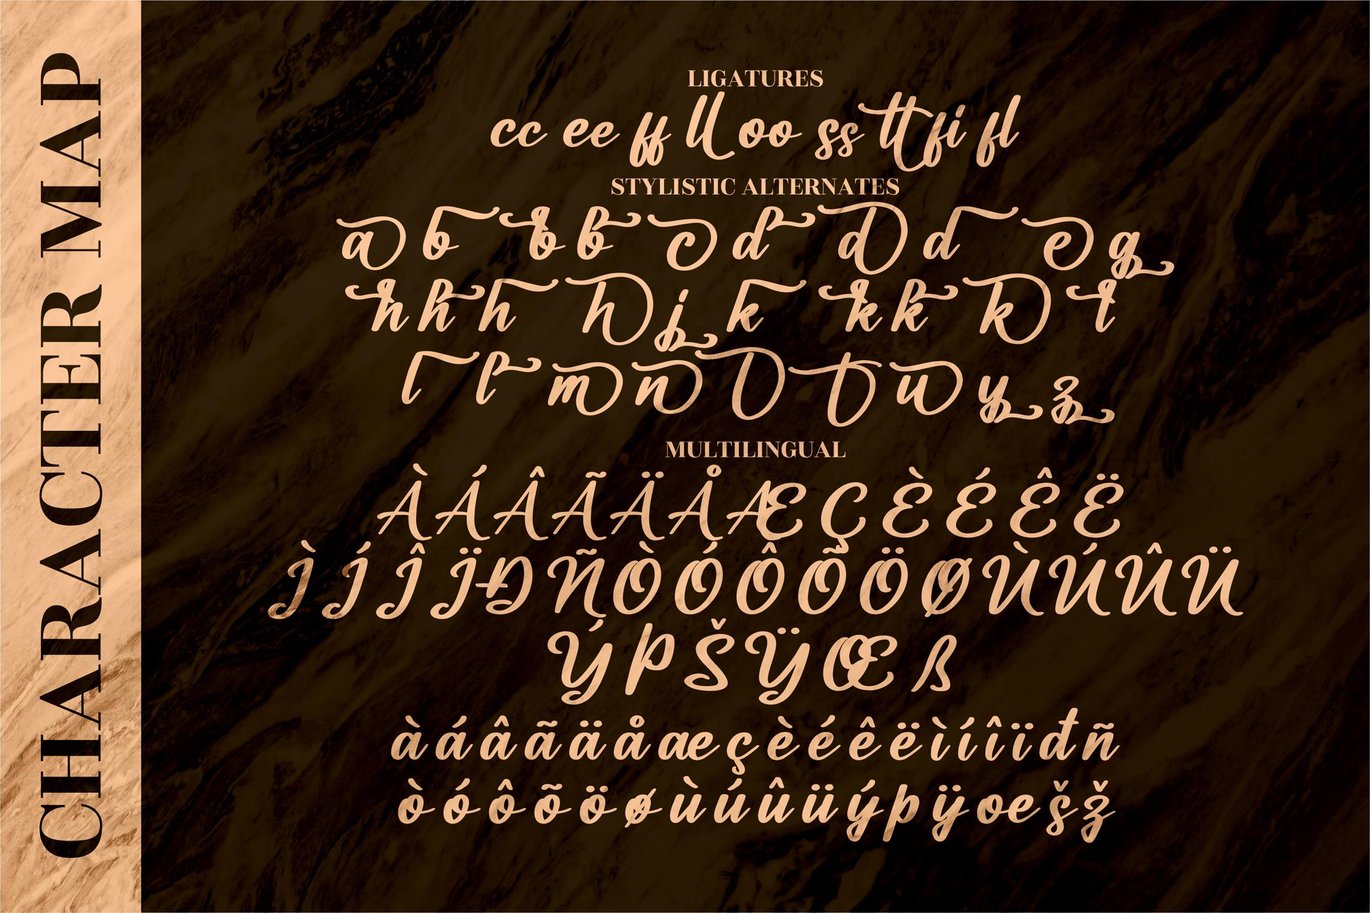 CHARACTER MAP
LIGATURES
cc ee ff ll oo ss tt fi fl
STYLISTIC ALTERNATES
a b b b c d d d e g
h h h h j k k k k l
l l m n o t u y z
MULTILINGUAL
À Á Â Ã Ä Å Æ Ç È É Ê Ë
Ì Í Î Ï Ð Ñ Ò Ó Ô Õ Ö Ø Ù Ú Û Ü
Ý Þ Š Ÿ Œ ß
à á â ã ä å æ ç è é ê ë ì í î ï đ ñ
ò ó ô õ ö ø ù ú û ü ý þ ÿ œ š ž